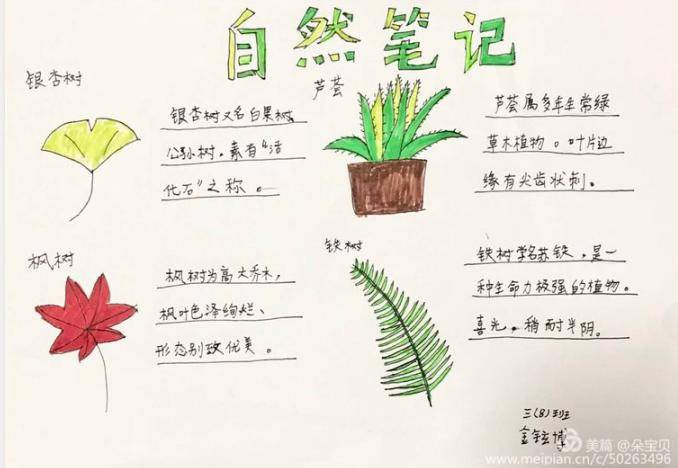 自然笔记
银杏树
银杏树又名白果树,
公孙树，素有“活
化石”之称。
芦荟
芦荟属多年生常绿
草木植物。叶片边
缘有尖齿状刺。
枫树
枫树为高大乔木，
枫叶色泽绚烂、
形态别致优美。
铁树
铁树学名苏铁，是一
种生命力极强的植物。
喜光，稍耐半阴。
三(8)班
金铉博
美篇 @朵宝贝
www.meipian.cn/c/50263496